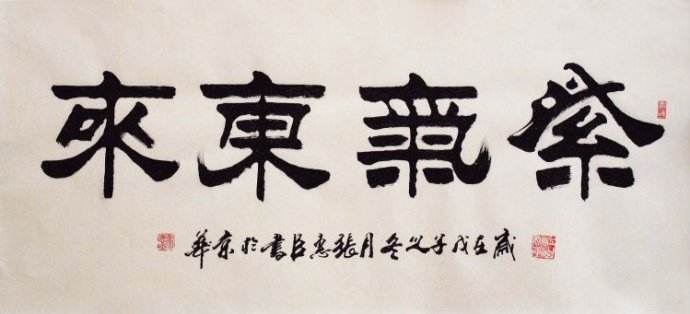 紫氣東來
歲在戊子之冬月張惠臣書於京華